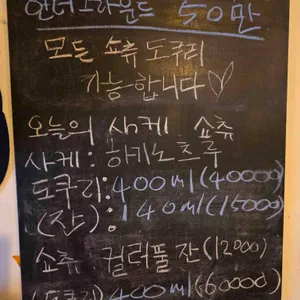 언더그라운드 50만
모든 쇼츄 도쿠리
가능합니다♡
오늘의 사케. 쇼츄
사케: 하키노츠루
도쿠리:400ml(40000)
(잔): 140ml(15000)
쇼츄 컬러풀 잔(12000)
(도쿠리)400ml(60000)